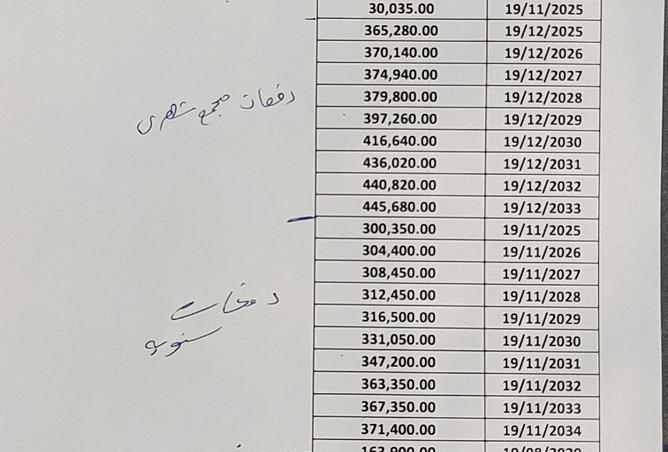 30,035.00 19/11/2025
365,280.00 19/12/2025
370,140.00 19/12/2026
374,940.00 19/12/2027
379,800.00 19/12/2028
397,260.00 19/12/2029
416,640.00 19/12/2030
436,020.00 19/12/2031
440,820.00 19/12/2032
445,680.00 19/12/2033
دفعات مجمع شهري
300,350.00 19/11/2025
304,400.00 19/11/2026
308,450.00 19/11/2027
312,450.00 19/11/2028
316,500.00 19/11/2029
331,050.00 19/11/2030
347,200.00 19/11/2031
363,350.00 19/11/2032
367,350.00 19/11/2033
371,400.00 19/11/2034
دفعات
سنويه